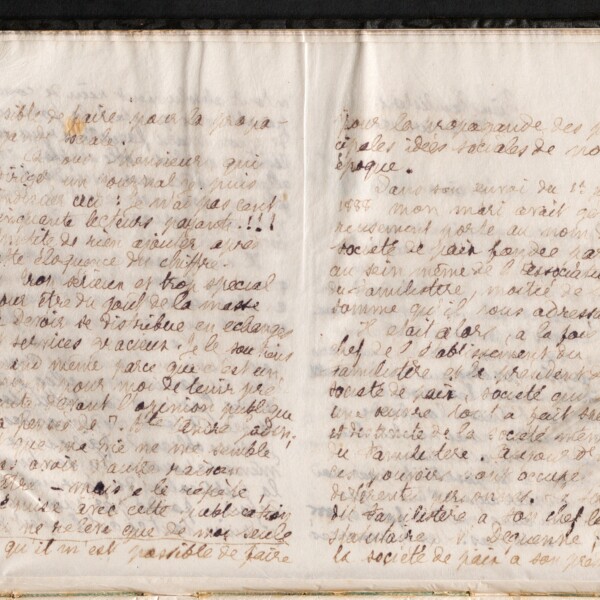 sible de faire pour la propa-
sociale.
à vous monsieur qui
un journal je puis
ceci : je n'ai pas cent
cinquante lecteurs payants !!!
de rien ajouter après
éloquence du chiffre.
Trop sérieux et trop spécial
pour être du goût de la masse
Devoir se distribue en échanges
services gracieux. Je le soutiens
quand même parce que c'est un
pour moi de tenir pré
devant l'opinion publique
pensée de J. Bte André Godin;
que sa vie ne me semble
avoir d'autre raison
- mais je le répète,
avec cette publication
ne relève que de moi seule
qu'il m'est possible de faire
pour la propagande des p
cipales idées sociales de no
époque.
Dans son envoi du 1er
1888 mon mari avait gé
reusement porté au nom d
société de paix fondée pa
au sein même de l'associati
du familistère, moitié de
somme qu'il vous adressa
Il était alors, à la foi
chef de l'établissement du
familistère et le président
société de paix, société qui
une œuvre tout à fait sp
et distincte de la société mêm
du familistère.
ces pouvoirs sont occupés
différentes personnes.
du familistère a son chef le
statutaire Dequenne ;
la société de paix a son pré